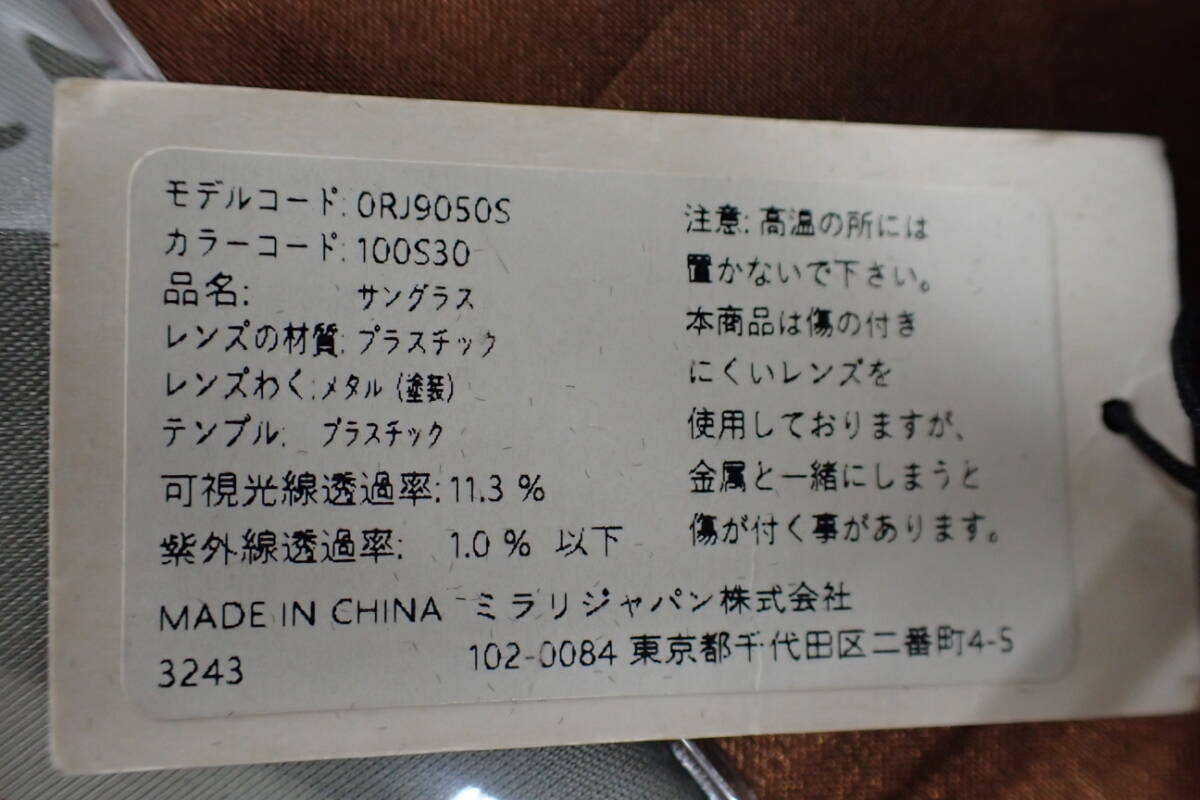 モデルコード: 0RJ9050S
カラーコード: 100S30
品名: サングラス
レンズの材質: プラスチック
レンズわく: メタル (塗装)
テンプル: プラスチック
可視光線透過率: 11.3 %
紫外線透過率: 1.0 % 以下
注意: 高温の所には
置かないで下さい。
本商品は傷の付き
にくいレンズを
使用しておりますが、
金属と一緒にしまうと
傷が付く事があります。
MADE IN CHINA ミラリジャパン株式会社
3243 102-0084 東京都千代田区二番町4-5